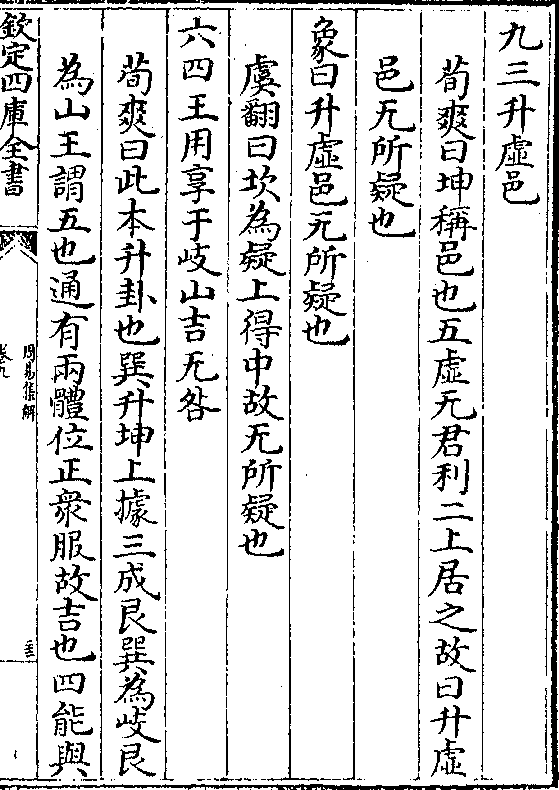 九三升虛邑
荀爽曰坤稱邑也五虛无君利二上居之故曰升虛
邑无所疑也
象曰升虛邑无所疑也
虞翻曰坎為疑上得中故无所疑也
六四王用享于岐山吉无咎
荀爽曰此本升卦也巽升坤上據三成艮巽為岐艮
為山王謂五也通有兩體位正衆服故吉也四能與
欽定四庫全書
周易集解
卷九